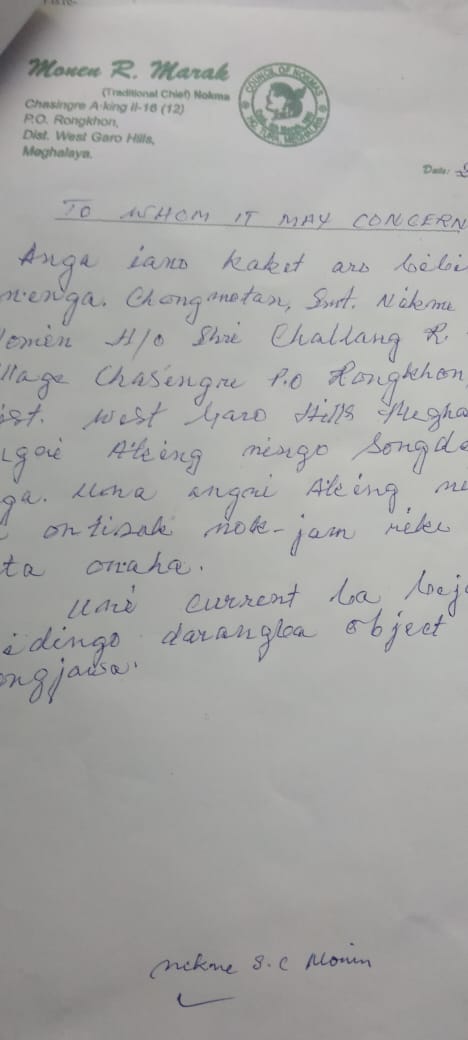 Monen R. Marak
(Traditional Chief) Nokma
Chasingre A·king II-16 (12)
P.O. Rongkhon,
Dist. West Garo Hills,
Meghalaya.
COUNCIL OF NOKMAS
Date:
TO WHOM IT MAY CONCERN
Anga iano kaket aro
nenga. Chongmotan, Smt. Nikme
H/o Shri Challang R.
llage Chasengre P.O Rongkhon,
ist. West Garo Hills Megha
A·king ningo Songdo
ga. Una angni A·king
ontisak nok-jam
ta onaha.
Uni current ba
dingo darangba object
ongjawa.
S.C Momin